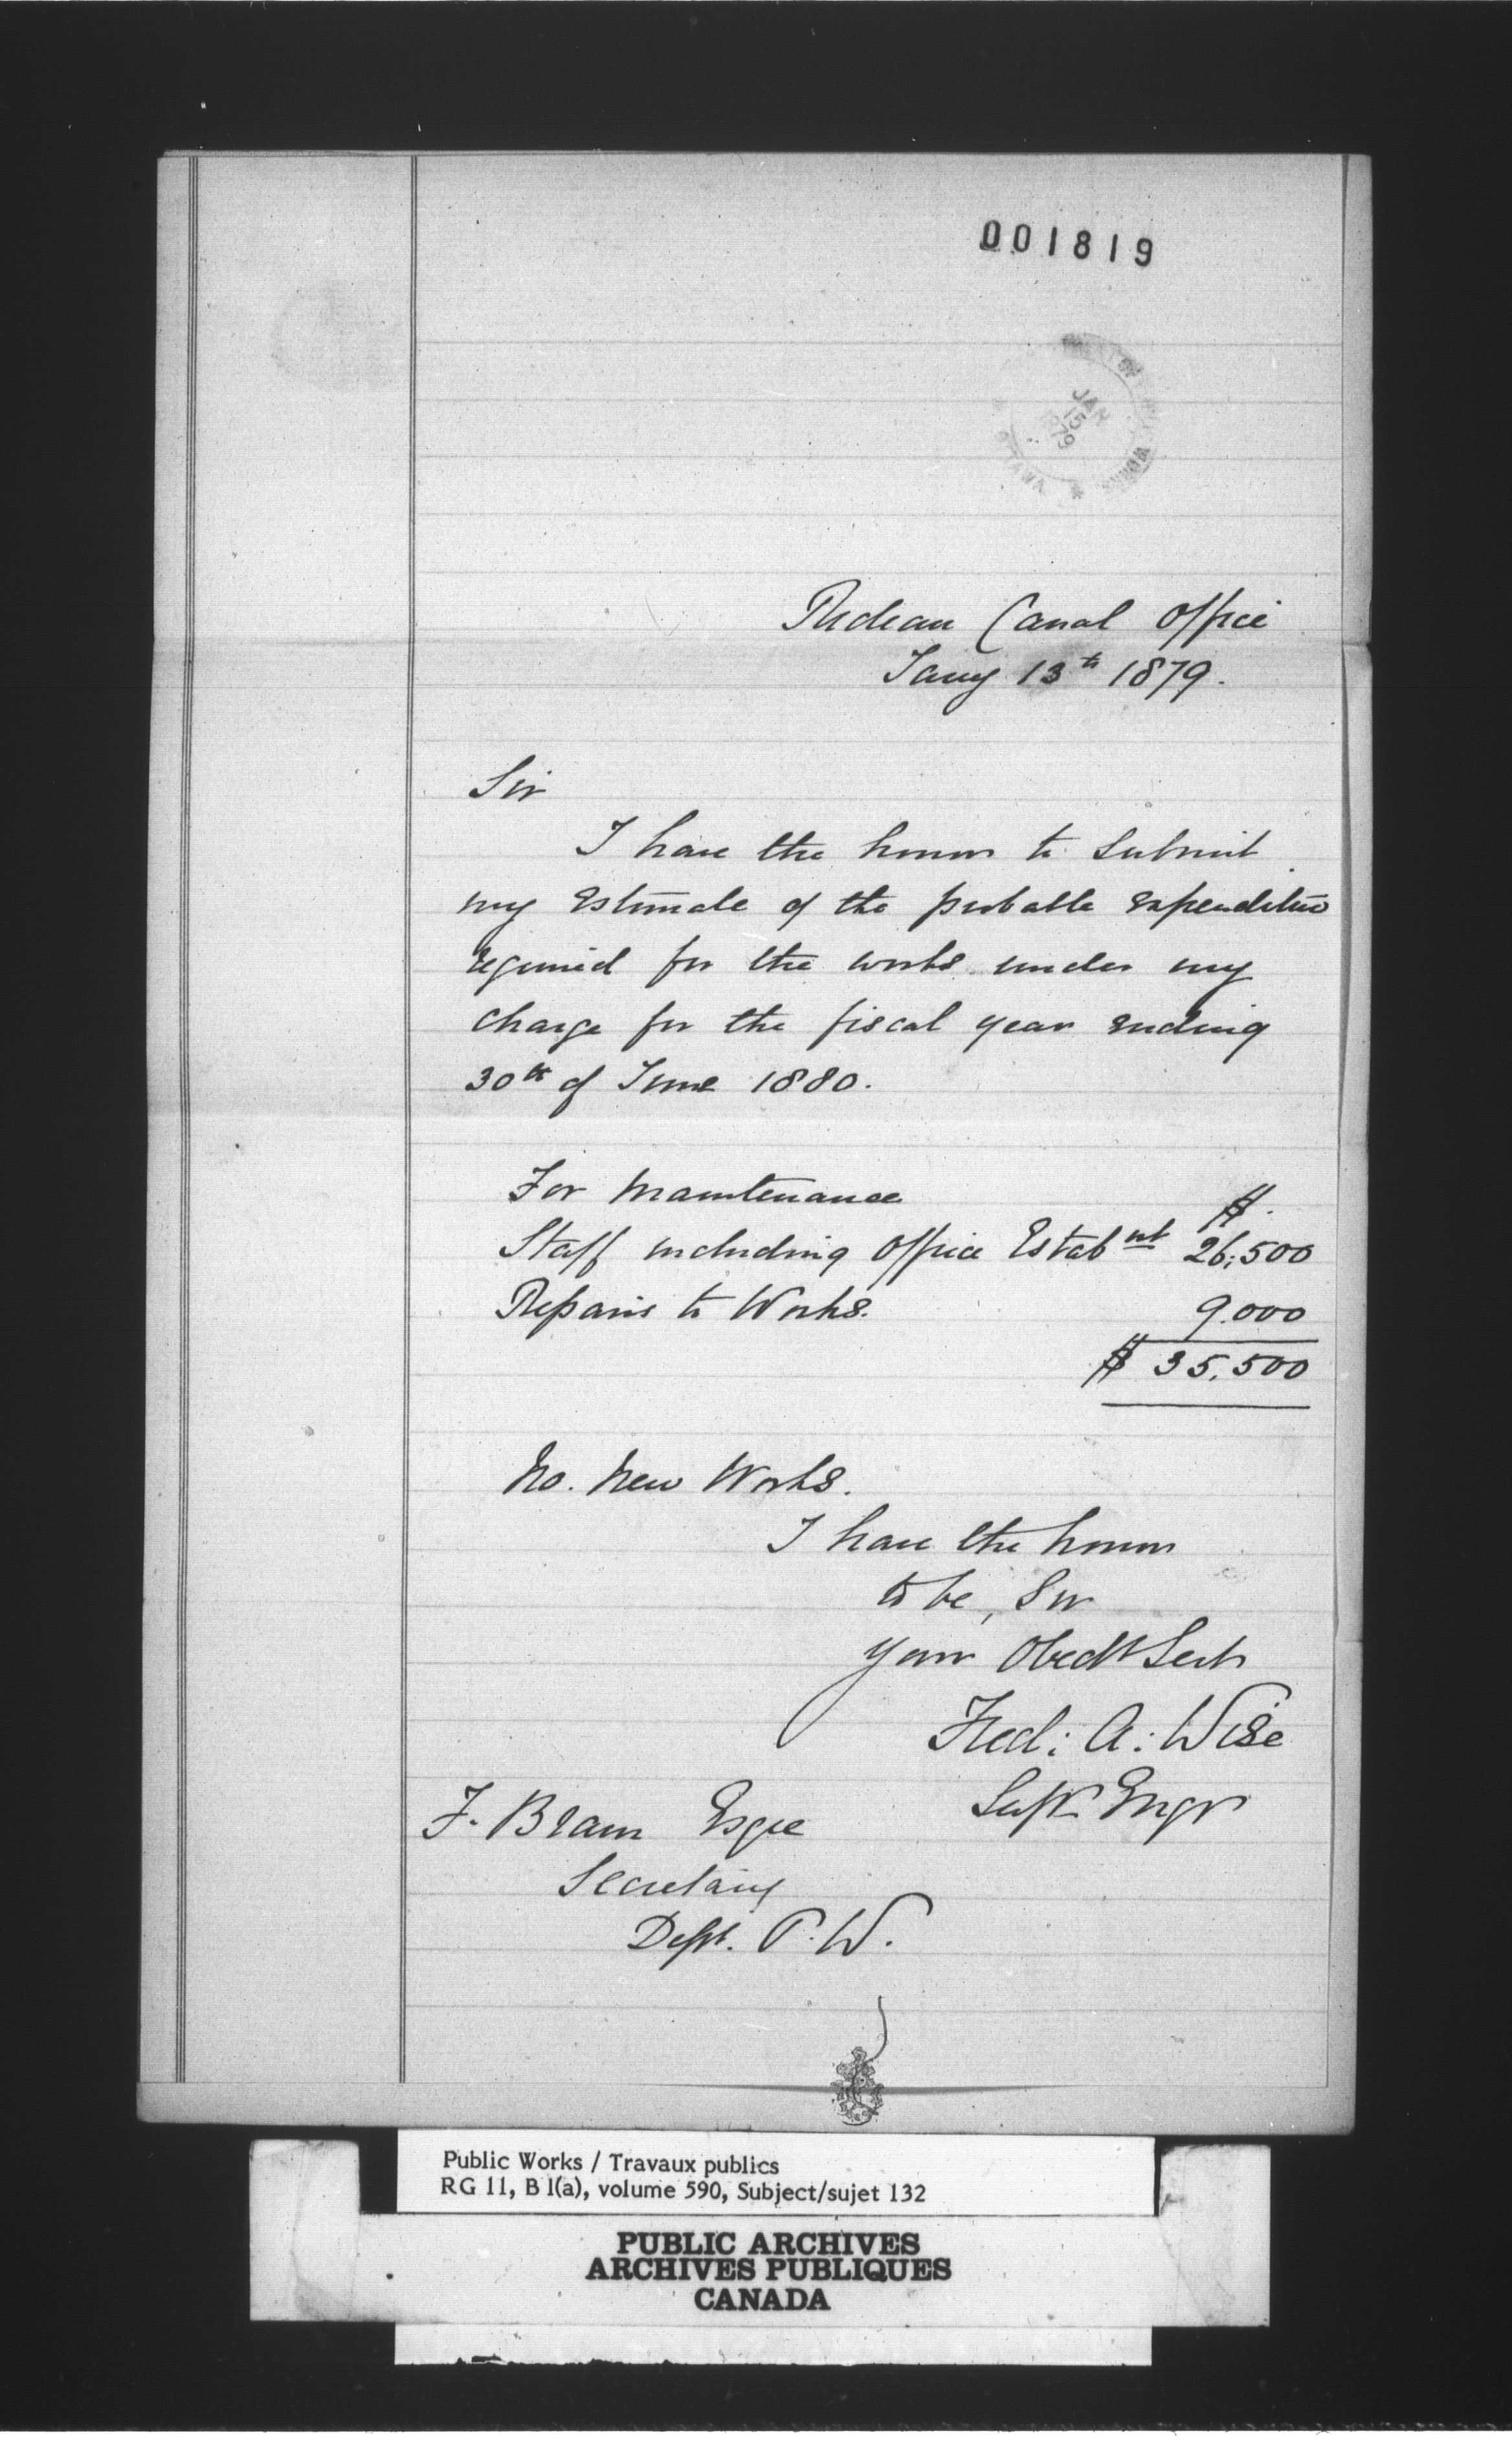 001819
JAN
15
1879
WORKS
Rideau Canal Office
Jany 13th 1879.
Sir
I have the honor to submit
my Estimate of the probable expenditure
required for the works under my
charge for the fiscal year ending
30th of June 1880.
For Maintenance
$.
Staff including Office Estabnt 26,500
Repairs to Works. 9.000
$ 35,500
No. New Works.
I have the honor
to be, Sir
Your Obedt Servt
Fred: A: Wise
Supt Engr
F. Braun Esqre
Secretary
Dept. P. W.
Public Works / Travaux publics
RG 11, B 1(a), volume 590, Subject/sujet 132
PUBLIC ARCHIVES
ARCHIVES PUBLIQUES
CANADA